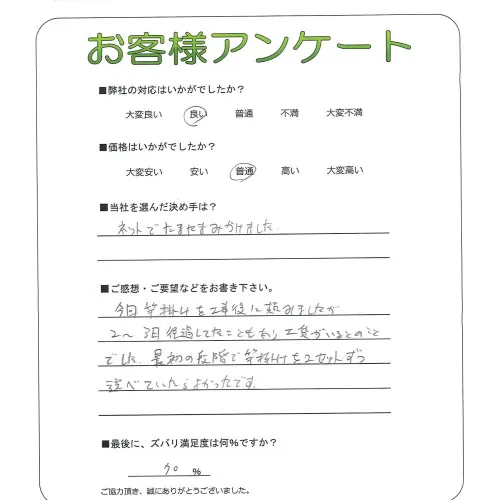 お客様アンケート
■弊社の対応はいかがでしたか？
大変良い 良い 普通 不満 大変不満
■価格はいかがでしたか？
大変安い 安い 普通 高い 大変高い
■当社を選んだ決め手は？
ネットでたまたまみかけました.
■ご感想・ご要望などをお書き下さい。
今回 竿掛けを工事後に頼みましたが
2～3日経過してたこともあり工賃がいるとのこと
でした. 最初の段階で竿掛けを2セットずつ
選べていたらよかったです.
■最後に、ズバリ満足度は何%ですか？
%
ご協力頂き、誠にありがとうございました。